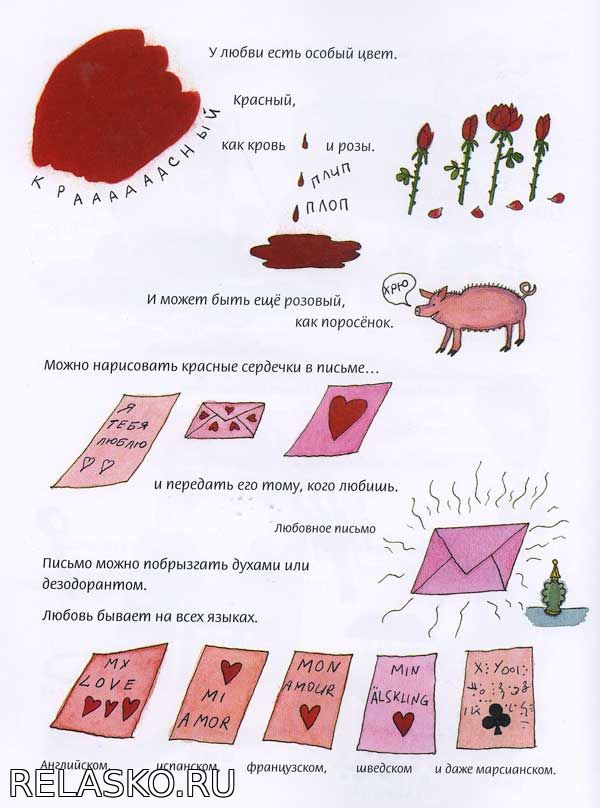 У любви есть особый цвет.
Красный,
КРАААААСНЫЙ
как кровь и розы.
ПЛИП
ПЛОП
И может быть ещё розовый,
как поросёнок.
ХРЮ
Можно нарисовать красные сердечки в письме...
Я
ТЕБЯ
ЛЮБЛЮ
и передать его тому, кого любишь.
Любовное письмо
Письмо можно побрызгать духами или
дезодорантом.
Любовь бывает на всех языках.
MY
LOVE
MI
AMOR
MON
AMOUR
MIN
ÄLSKLING
Английском, испанском, французском, шведском и даже марсианском.
RELASKO.RU